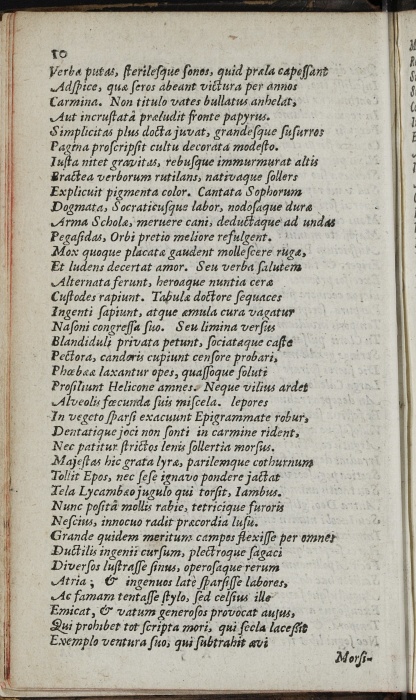 10
Verba putas, sterilesque sonos, quid præla capessant
Adspice, quæ seros abeant victura per annos
Carmina. Non titulo vates bullatus anhelat,
Aut incrustatâ præludit fronte papyrus.
Simplicitas plus docta juvat, grandesque susurros
Pagina proscripsit cultu decorata modesto.
Iusta nitet gravitas, rebusque immurmurat altis
Bractea verborum rutilans, nativaque sollers
Explicuit pigmenta color. Cantata Sophorum
Dogmata, Socraticusque labor, nodosaque duræ
Arma Scholæ, meruere cani, deductaque ad undas
Pegasidas, Orbi pretio meliore refulgent.
Mox quoque placatæ gaudent mollescere rugæ,
Et ludens decertat amor. Seu verba salutem
Alternata ferunt, heroaque nuntia ceræ
Custodes rapiunt. Tabulæ doctore sequaces
Ingenti sapiunt, atque æmula cura vagatur
Nasoni congressa suo. Seu limina versus
Blandiduli privata petunt, sociataque caste
Pectora, candoris cupiunt censore probari,
Phœbææ laxantur opes, quassoque soluti
Prosiliunt Helicone amnes. Neque vilius ardet
Alveolis fœcunda suis miscela. lepores
In vegeto sparsi exacuunt Epigrammate robur,
Dentatique joci non sonti in carmine rident,
Nec patitur strictos lenis sollertia morsus.
Majestas hic grata lyræ, parilemque cothurnum
Tollit Epos, nec sese ignavo pondere jactat
Tela Lycambæo jugulo qui torsit, Iambus.
Nunc positâ mollis rabie, tetricique furoris
Nescius, innocuo radit præcordia lusu.
Grande quidem meritum campos flexisse per omnes
Ductilis ingenii cursum, plectroque sagaci
Diversos lustrasse sinus, operosaque rerum
Atria; & ingenuos latè sparsisse labores,
Ac famam tentasse stylo, sed celsius ille
Emicat, & vatum generosos provocat ausus,
Qui prohibet tot scripta mori, qui secla lacessit
Exemplo ventura suo, qui subtrahit ævi
Morsi-